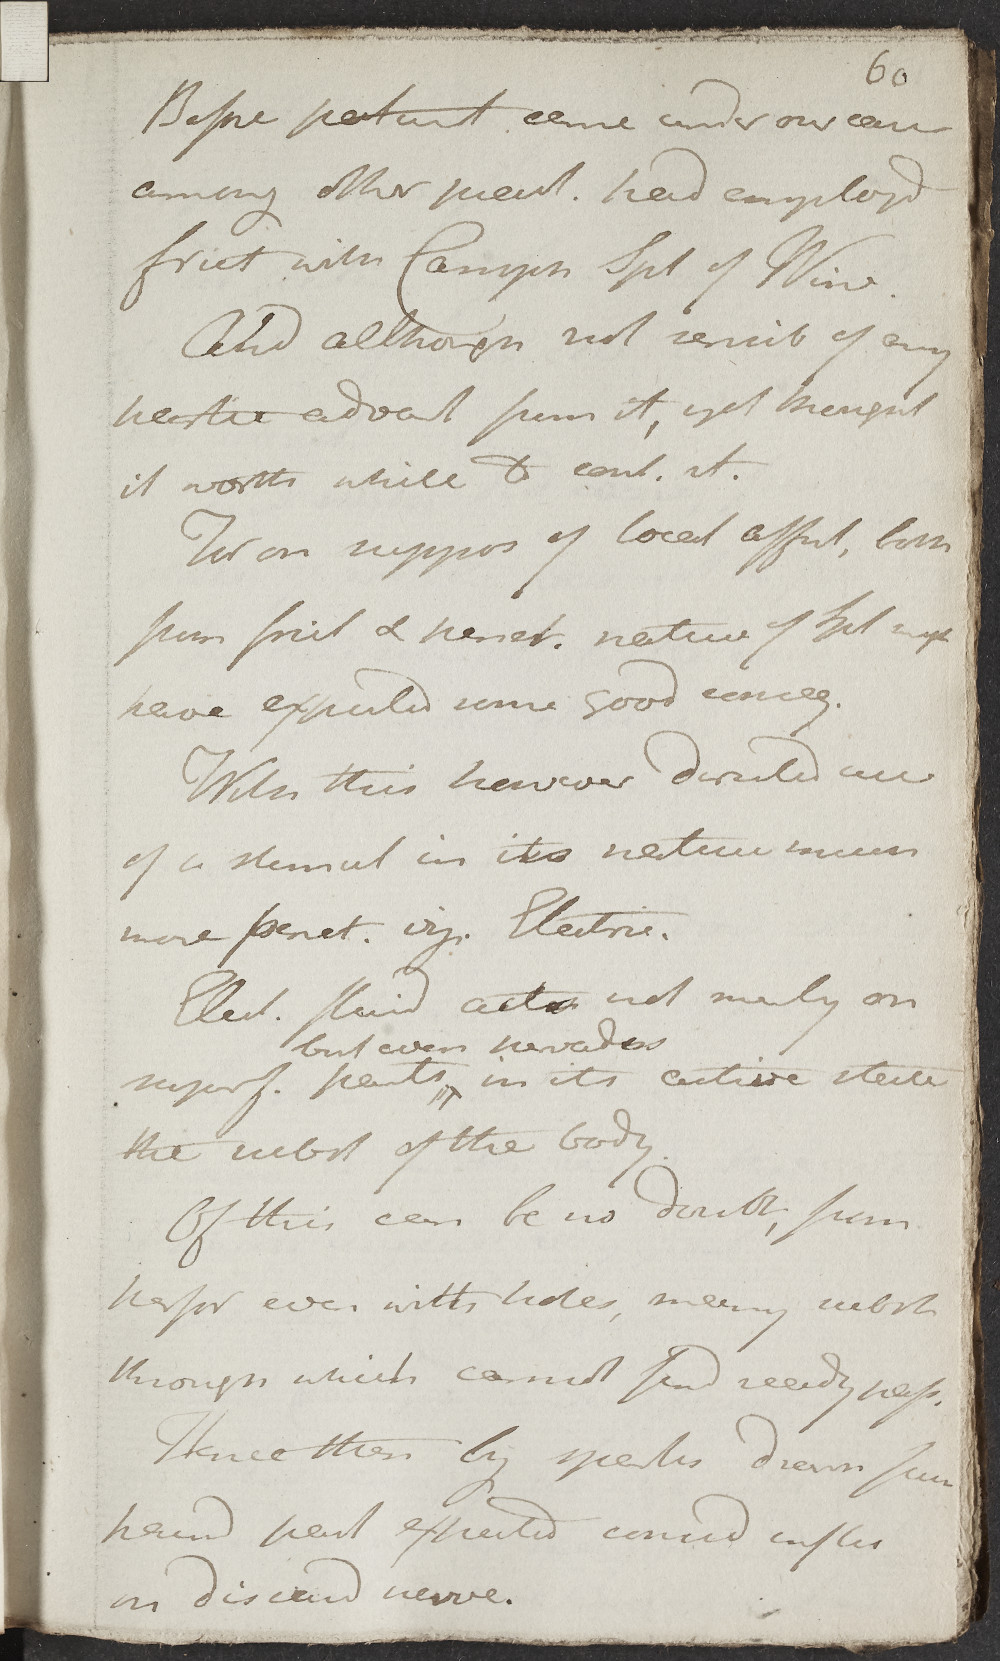 60
Before patient came under our care
among other pract. had employd
frict with Camph Spt of Wine.
And although not sensib of any
partic advant from it, yet thought
it worth while to cont. it.
For on suppos of local affect, both
from frict & penet. nature of Spt might
have expected some good conseq.
With this however directed use
of a stimul in its nature much
more penet. viz. Electric.
Elect. fluid acts not merely on
but even pervades
superf. parts, in its active state
the subst of the body.
Of this can be no doubt, from
perfor even with holes, many subst
through which cannot find ready pass.
Hence then by sparks drawn from
pain'd part expected consid influ
on diseasd nerve.